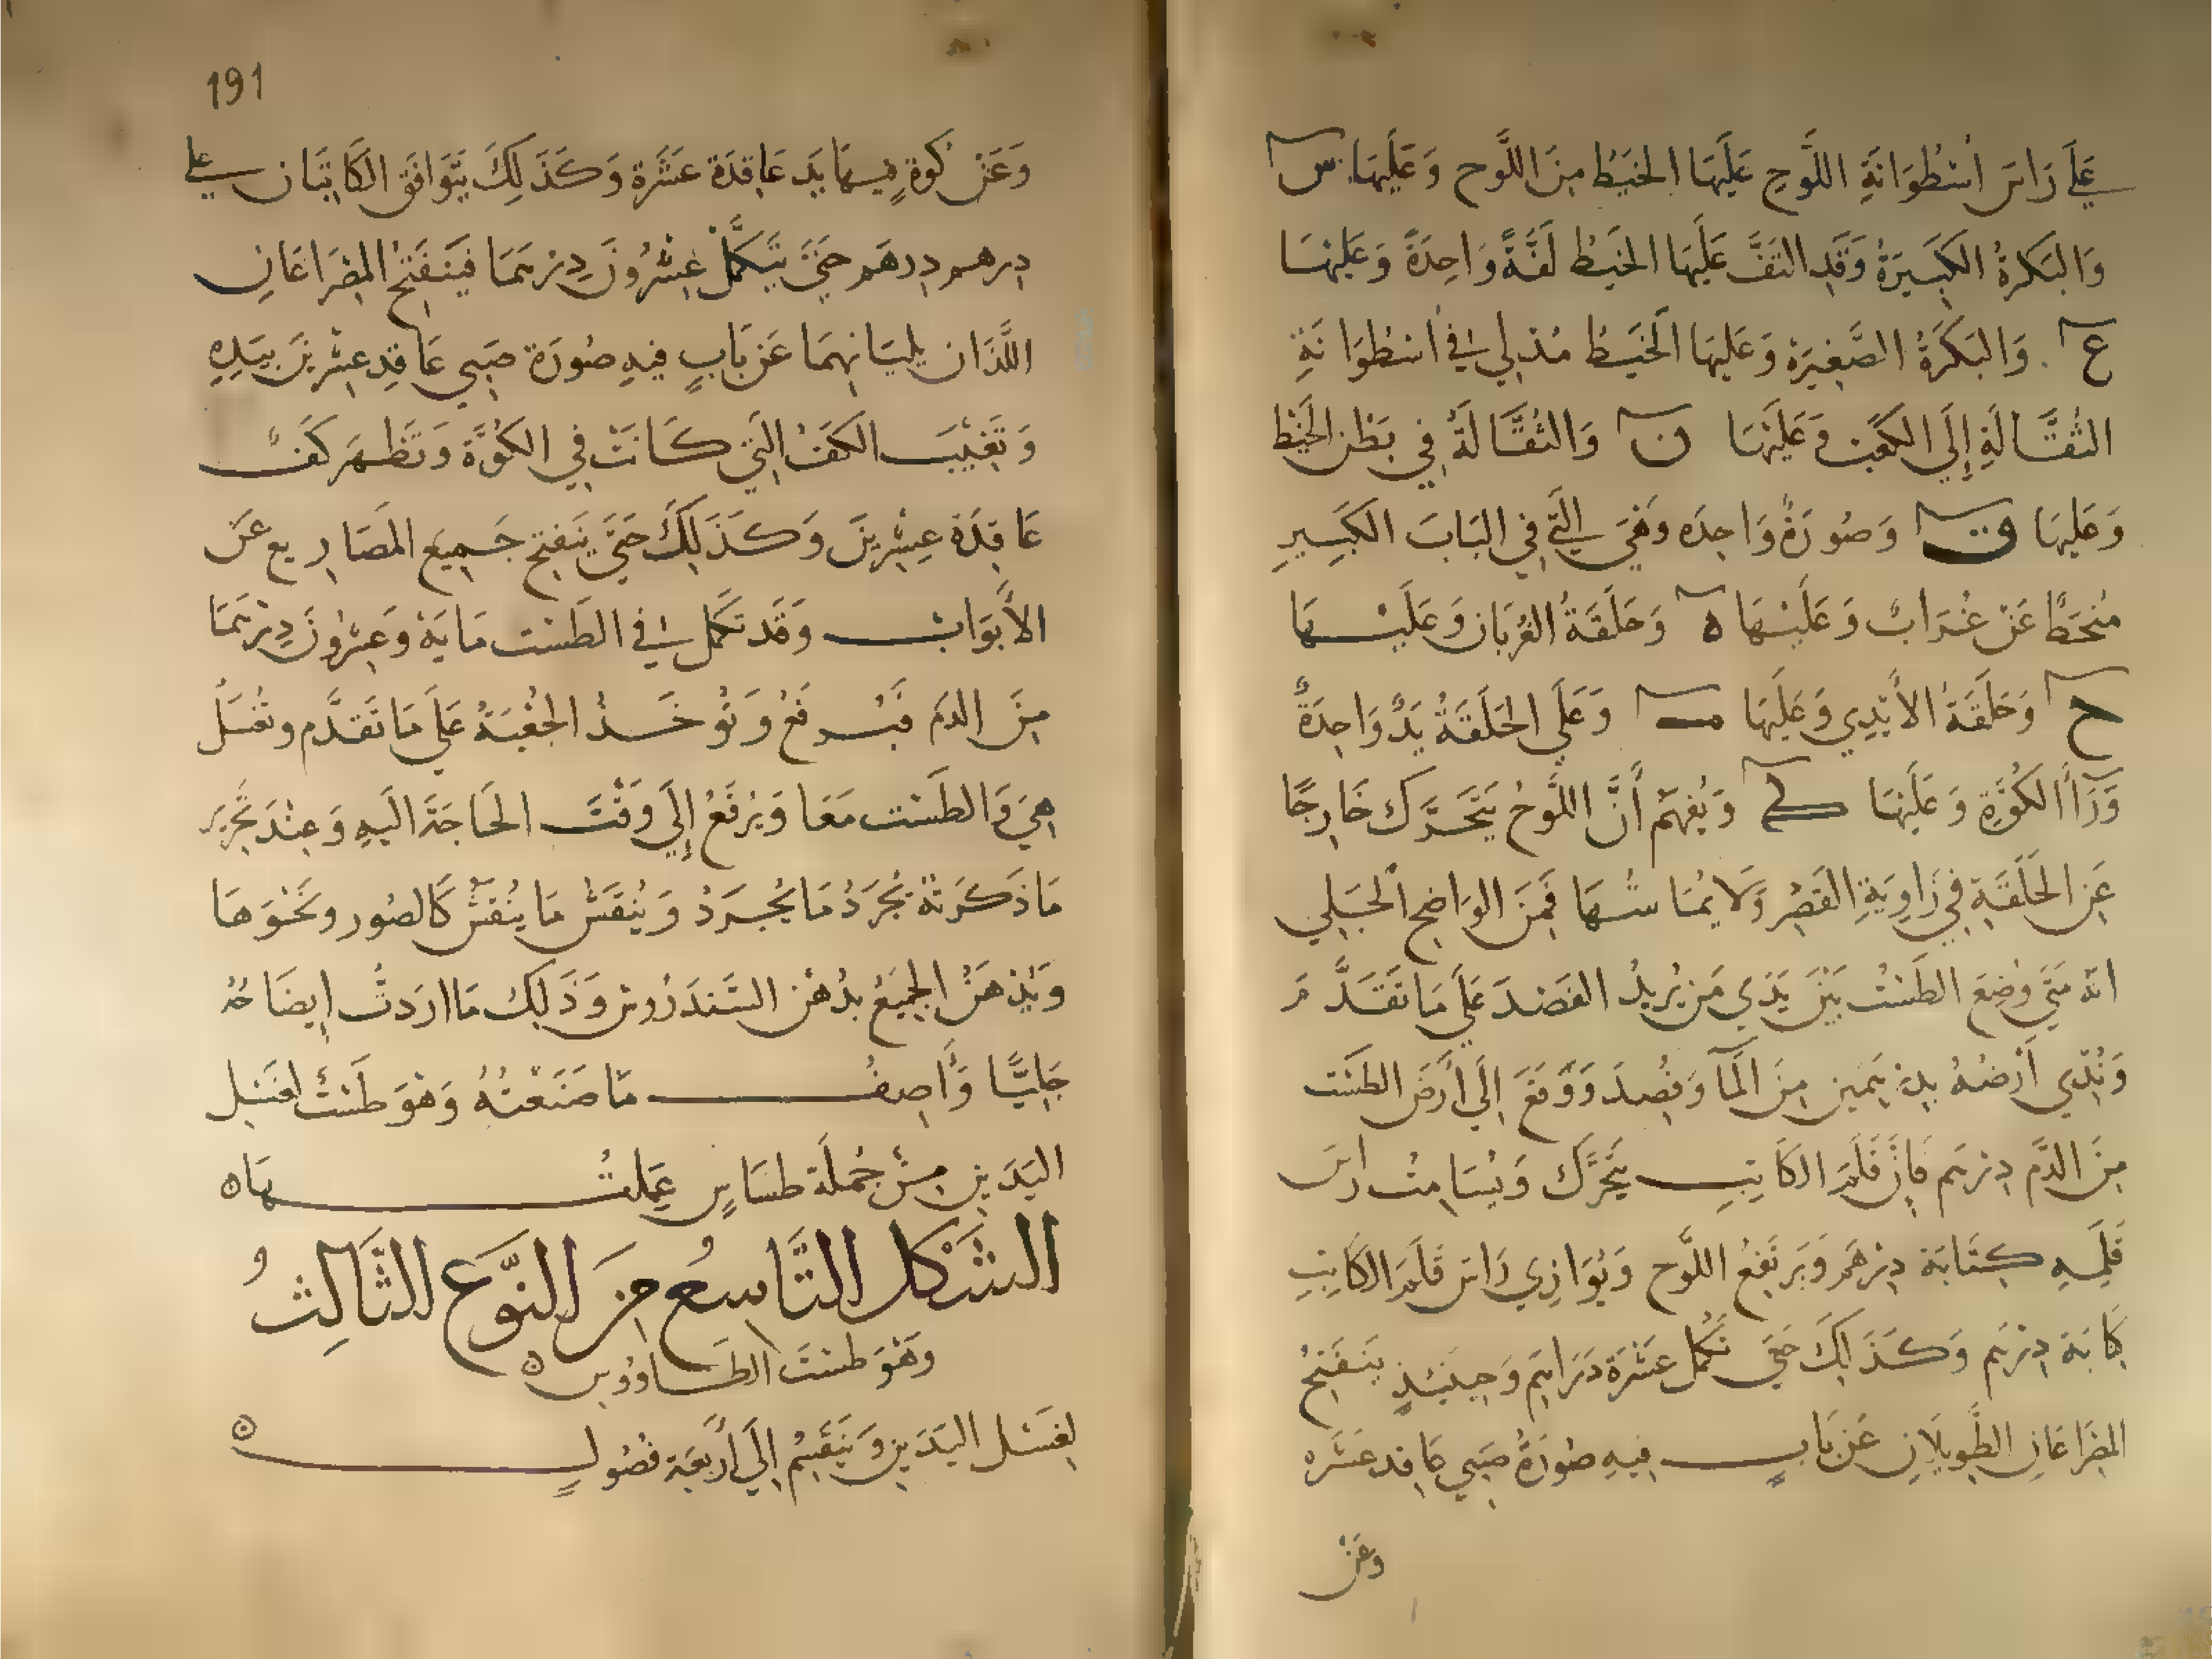 علي راس اسطوانة اللوح عليها الخيط من اللوح وعليها س
والبكرة الكبيرة وقد التف عليها الخيط لفة واحدة وعليها
ع والبكرة الصغيرة وعليها الخيط مدلي في اسطوانة
الثقالة إلي الكعب وعليها ن والثقالة في بطن الخيط
وعليها ق وصورة واحده وهي التي في الباب الكبير
منحط عن غراب وعليها ه وحلقة الغربان وعليها
ح وحلقة الأيدي وعليها وعلي الحلقة يد واحدة
ورآ الكوة وعليها ك ويفهم أن اللوح يتحرك خارجا
عن الحلقة في زاوية القصر ولا يماسها فمن الواضح الجلي
انه متي وضع الطست بين يدي من يريد الفصد علي ما تقدم
وندي أرضه بدني من المآ وفصد ووقع إلي أرض الطست
من الدم درهم فإن قلم الكاتب يتحرك ويسامت راس
قلمه كتابة درهم ويرتفع اللوح ويوازي راس قلم الكاتب
كتابة درهم وكذلك حتي تكمل عشرة دراهم وحينئذ ينفتح
المصراعان الطويلان عن باب فيه صورة صبي عاقد عشره
وعن
191
وعن كوة فيها يد عاقدة عشرة وكذلك يتوافق الكاتبان علي
درهم درهم حتي يتكمل عشرون درهما فينفتح المصراعان
اللذان يليانهما عن باب فيه صورة صبي عاقد عشرين بيده
وتغيب الكف التي كانت في الكوة وتظهر كف
عاقدة عشرين وكذلك حتي ينفتح جميع المصاريع عن
الأبواب وقد تكمل في الطست ماية وعشرون درهما
من الدم فيرفع وتوخذ الجعبة علي ما تقدم وتغسل
هي والطست معا ويرفع إلي وقت الحاجة اليه وعند تحرير
ما ذكرته يجرد ما يجرد وينقش ما ينقش كالصور ونحوها
ويدهن الجميع بدهن السندروس وذلك ما اردت ايضاحه
جليا وأصف ما صنعته وهو طست لغسل
اليدين من جملة طساس عملتها ه
الشكل التاسع من النوع الثالث
وهو طست الطاووس ه
لغسل اليدين وينقسم إلي أربعة فصول ه